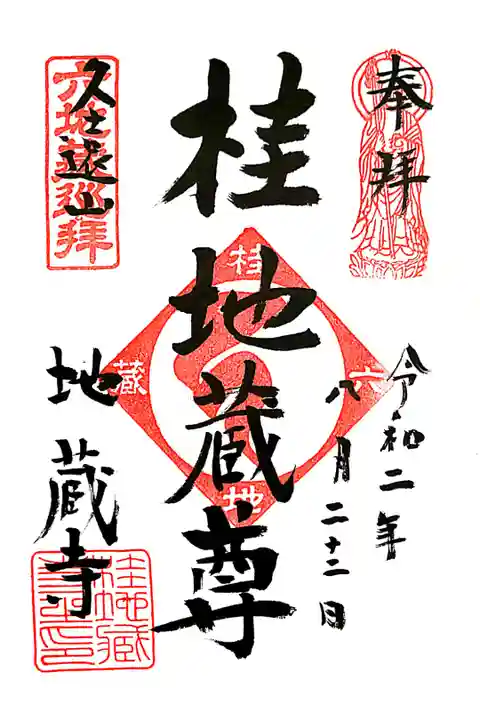 奉拝
令和二年
八月二十二日
桂地蔵尊
桂
六
地
蔵
六地蔵巡拝
久遠山
地蔵寺